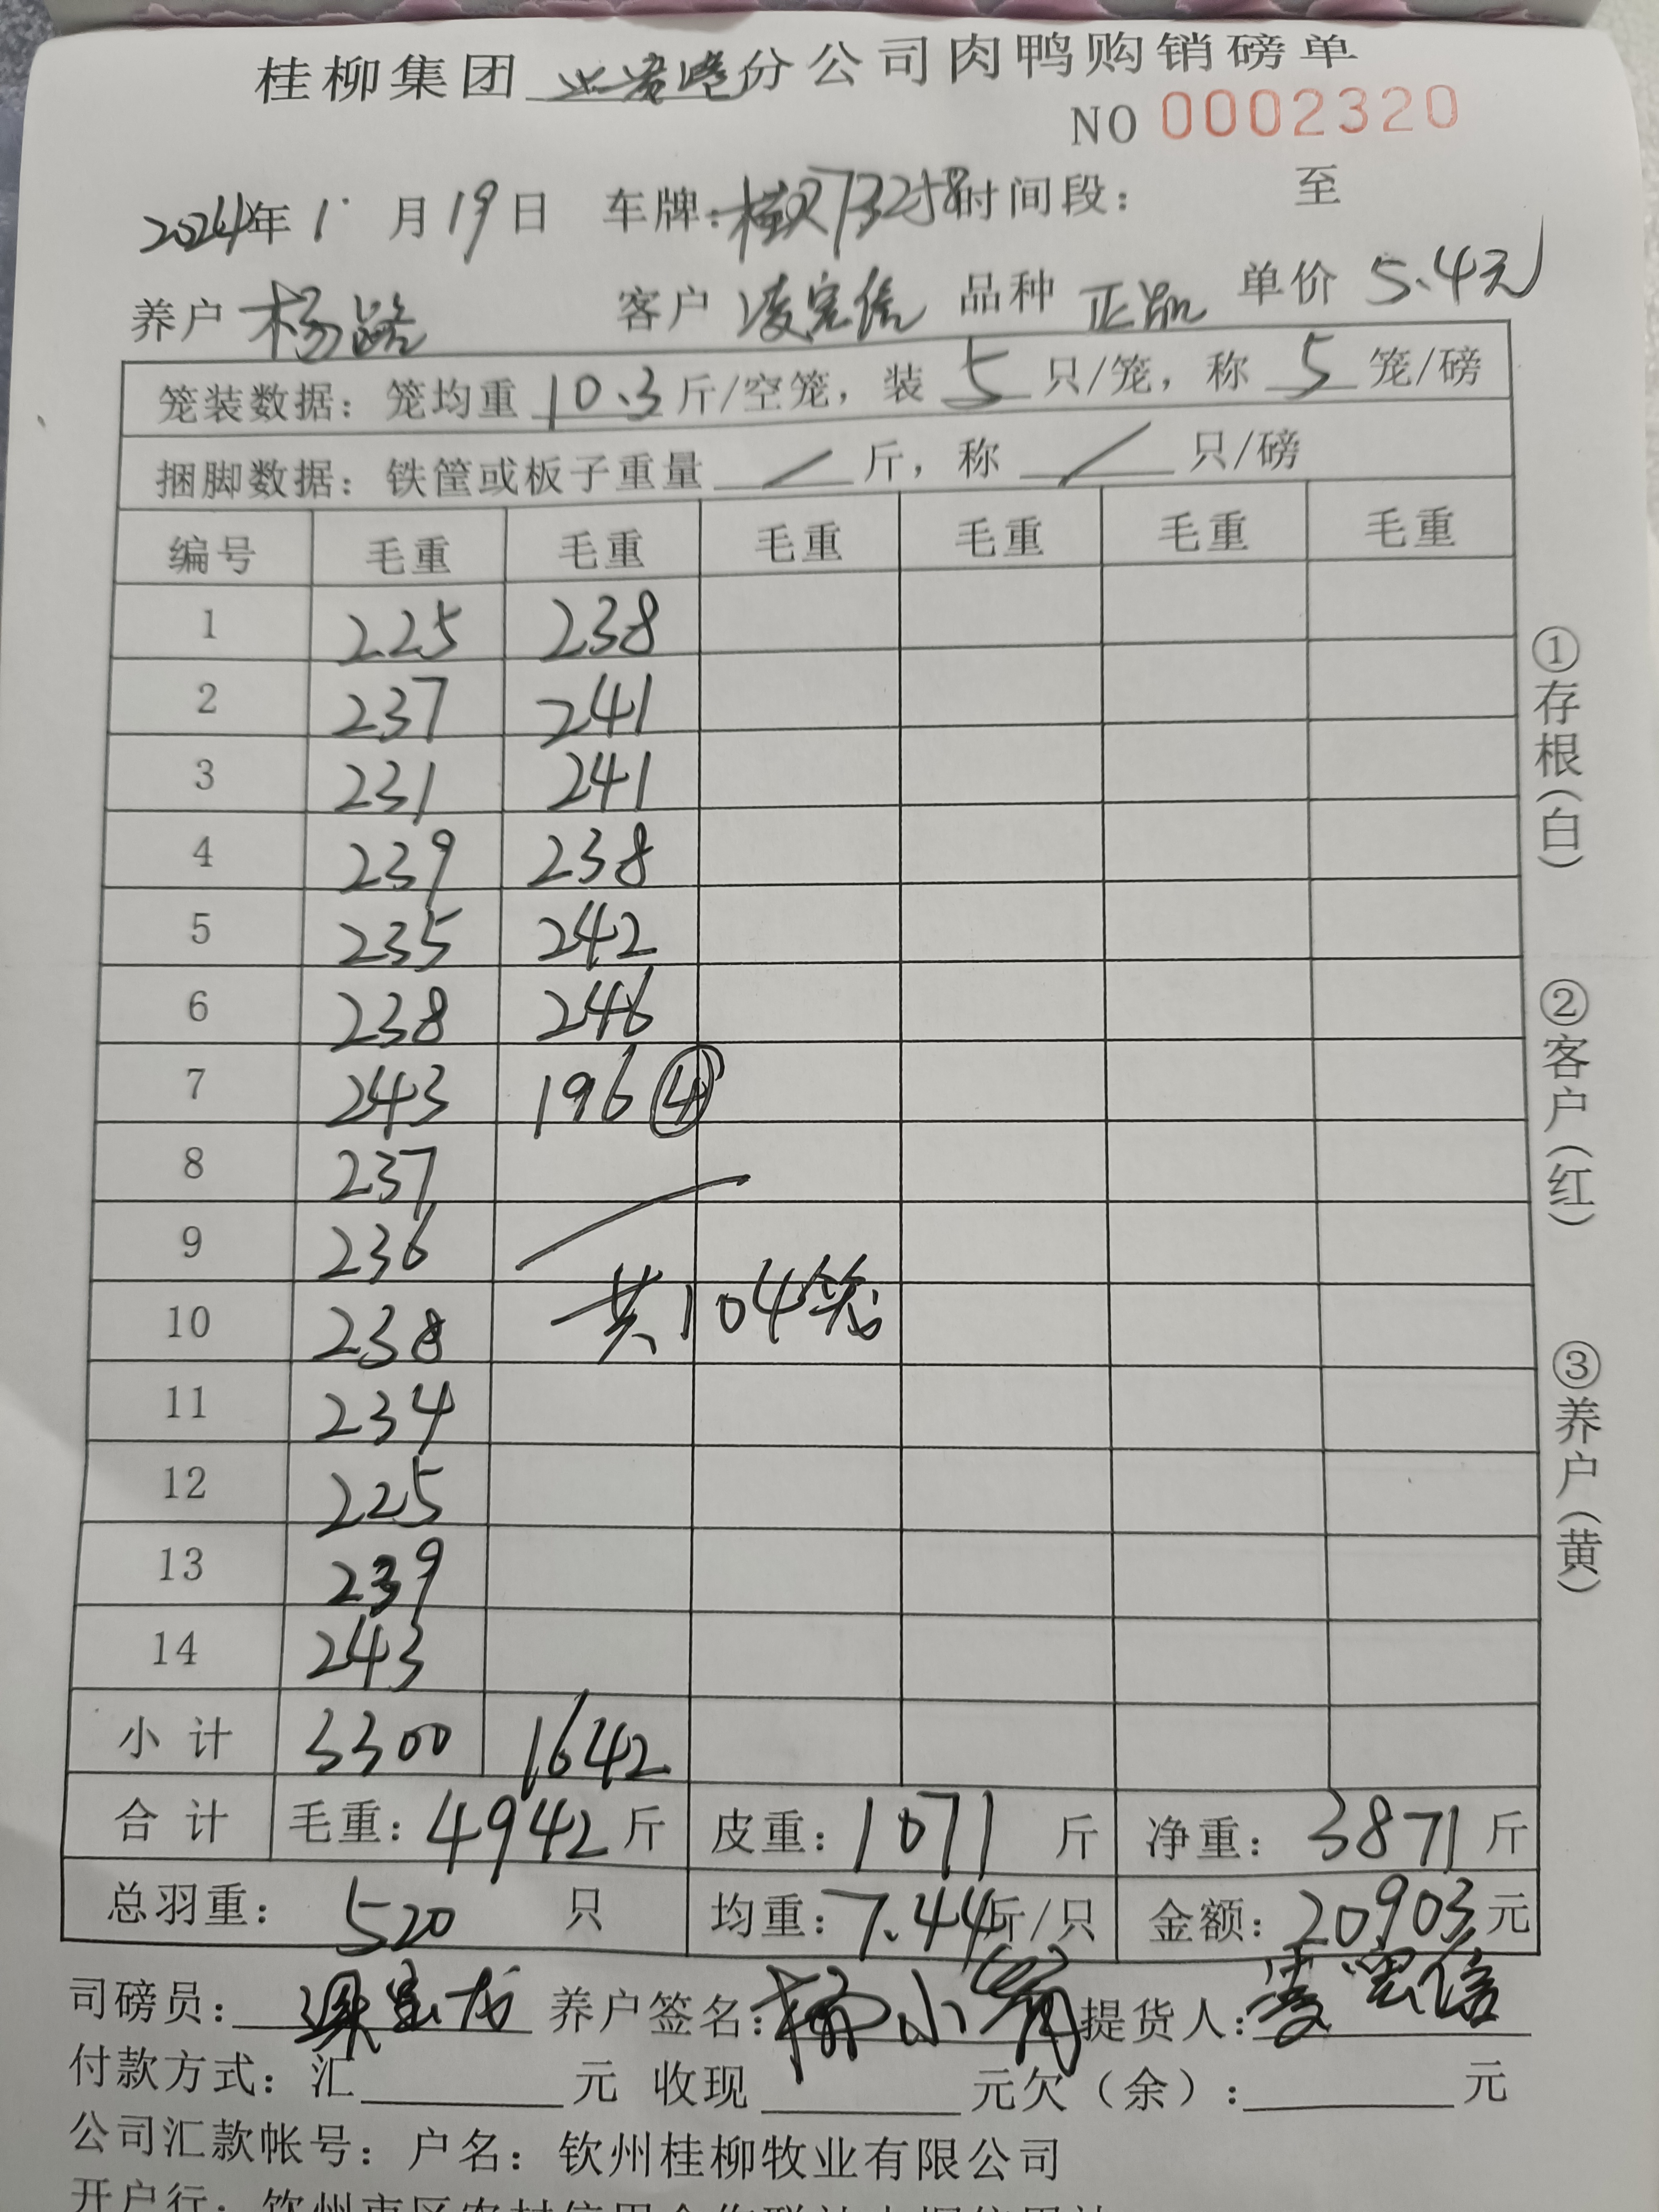 桂柳集团 分公司肉鸭购销磅单
NO 0002320
2024年 1 月 19 日 车牌: 73258 时间段: 至
养户 杨 客户 凌宝信 品种 正 单价 5.4元
笼装数据: 笼均重 10.3 斤/空笼, 装 5 只/笼, 称 5 笼/磅
捆脚数据: 铁筐或板子重量 / 斤, 称 / 只/磅
编号 毛重 毛重 毛重 毛重 毛重 毛重
1 225 238
2 237 241
3 231 241
4 239 238
5 235 242
6 238 246
7 243 196 ④
8 237
9 236
10 238 共104笼
11 234
12 225
13 239
14 243
小计 3300 1642
合计 毛重: 4942 斤 皮重: 1071 斤 净重: 3871 斤
总羽重: 520 只 均重: 7.44 斤/只 金额: 20903 元
司磅员: 养户签名: 杨小 提货人: 凌宝信
付款方式: 汇 元 收现 元欠(余): 元
公司汇款帐号: 户名: 钦州桂柳牧业有限公司
开户行:
①存根(白)
②客户(红)
③养户(黄)